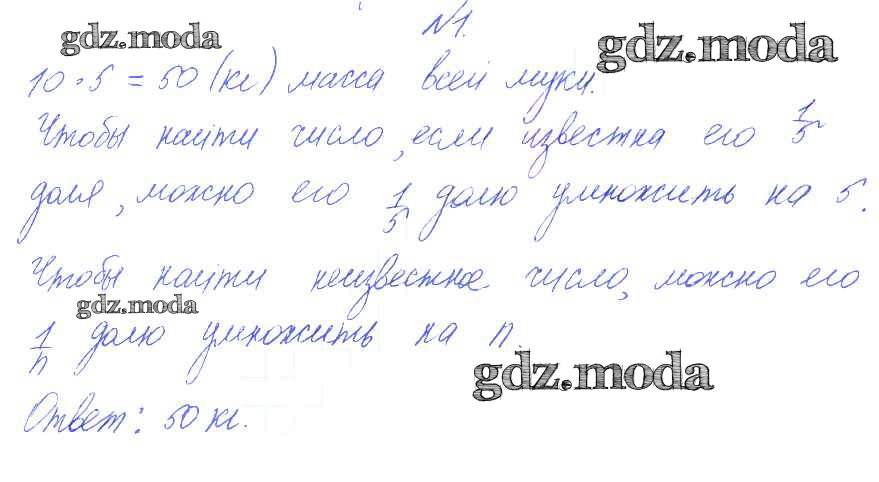 №1.
gdz.moda
gdz.moda
10·5=50 (кг) масса всей муки.
Чтобы найти число, если известна его 1/5
доля, можно его 1/5 долю умножить на 5.
Чтобы найти неизвестное число, можно его
gdz.moda
1/n долю умножить на n.
gdz.moda
Ответ: 50 кг.